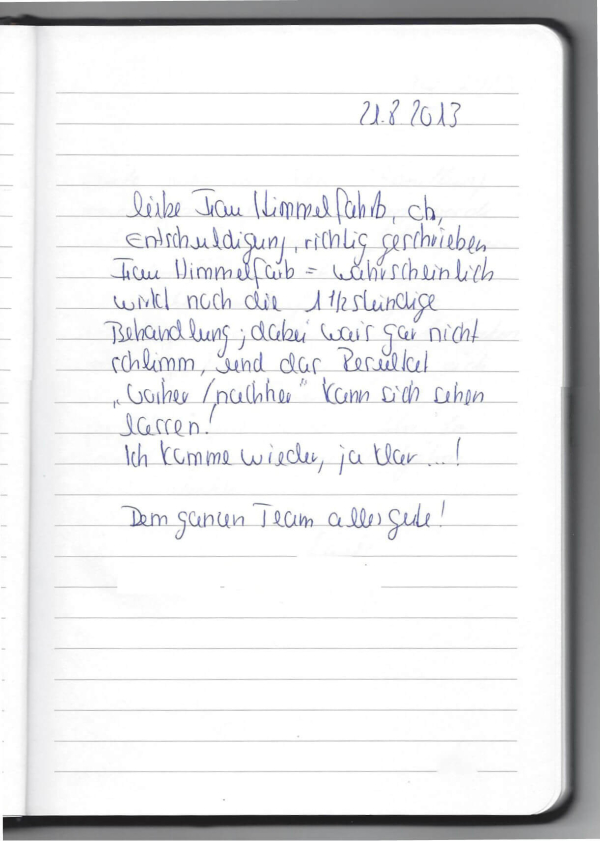 21.8 2013
liebe Frau Himmelfahrb, oh,
Entschuldigung, richtig geschrieben
Frau Himmelfarb = wahrscheinlich
wirkt noch die 1 1/2 stündige
Behandlung; dabei war's gar nicht
schlimm, und das Resultat
„vorher / nachher" kann sich sehen
lassen!
Ich komme wieder, ja klar ... !
Dem ganzen Team alles gute!